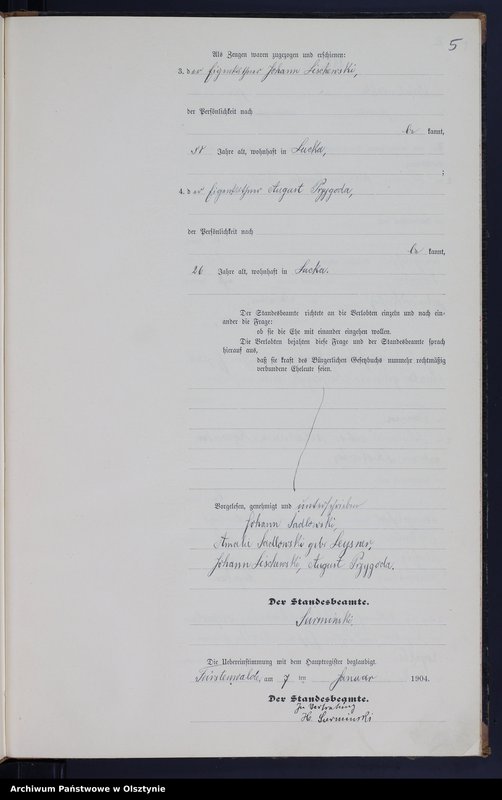 5
Als Zeugen waren zugezogen und erschienen:
3. der Eigenkäthner Johann Lischewski,
der Persönlichkeit nach
be kannt,
58 Jahre alt, wohnhaft in Lucka,
;
4. der Eigenkäthner August Przygoda,
der Persönlichkeit nach
be kannt,
26 Jahre alt, wohnhaft in Lucka.
Der Standesbeamte richtete an die Verlobten einzeln und nach ein-
ander die Frage:
ob sie die Ehe mit einander eingehen wollen.
Die Verlobten bejahten diese Frage und der Standesbeamte sprach
hierauf aus,
daß sie kraft des Bürgerlichen Gesetzbuchs nunmehr rechtmäßig
verbundene Eheleute seien.
Vorgelesen, genehmigt und unterschrieben
Johann Sadlowski,
Amalie Sadlowski geb.
Johann Lischewski, August Przygoda.
Der Standesbeamte.
Surminski.
Die Uebereinstimmung mit dem Hauptregister beglaubigt.
Fürstenwalde, am 7 ten Januar 1904.
Der Standesbeamte.
In Vertretung
H. Surminski
Archiwum Państwowe w Olsztynie